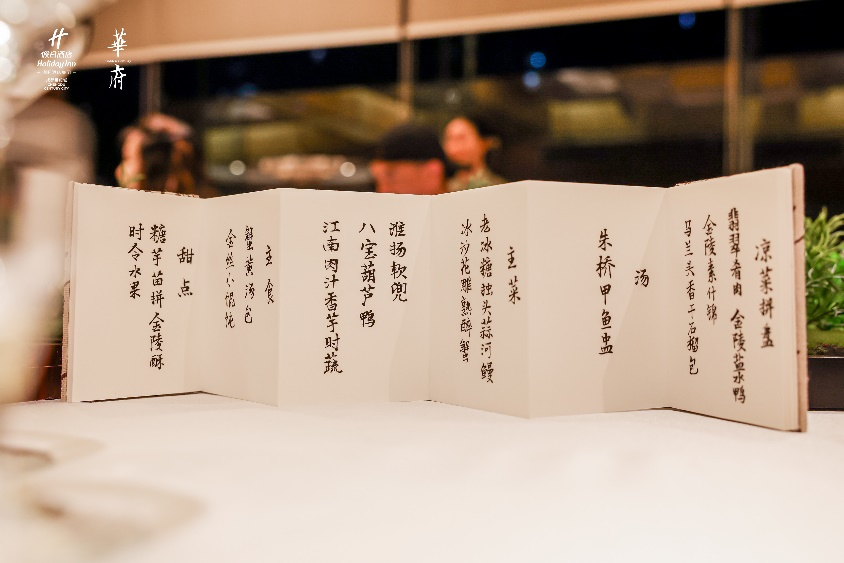 假日酒店
Holiday Inn
華府
凉菜拼盘
翡翠肴肉 金陵盐水鸭
金陵素什锦
马兰头香干石榴包
汤
朱桥甲鱼盅
主菜
老冰糖独头蒜河鳗
冰沙花雕熟醉蟹
淮扬软兜
八宝葫芦鸭
江南肉汁香芋时蔬
主食
蟹黄汤包
金丝小馄饨
甜点
糖芋苗拼金陵酥
时令水果